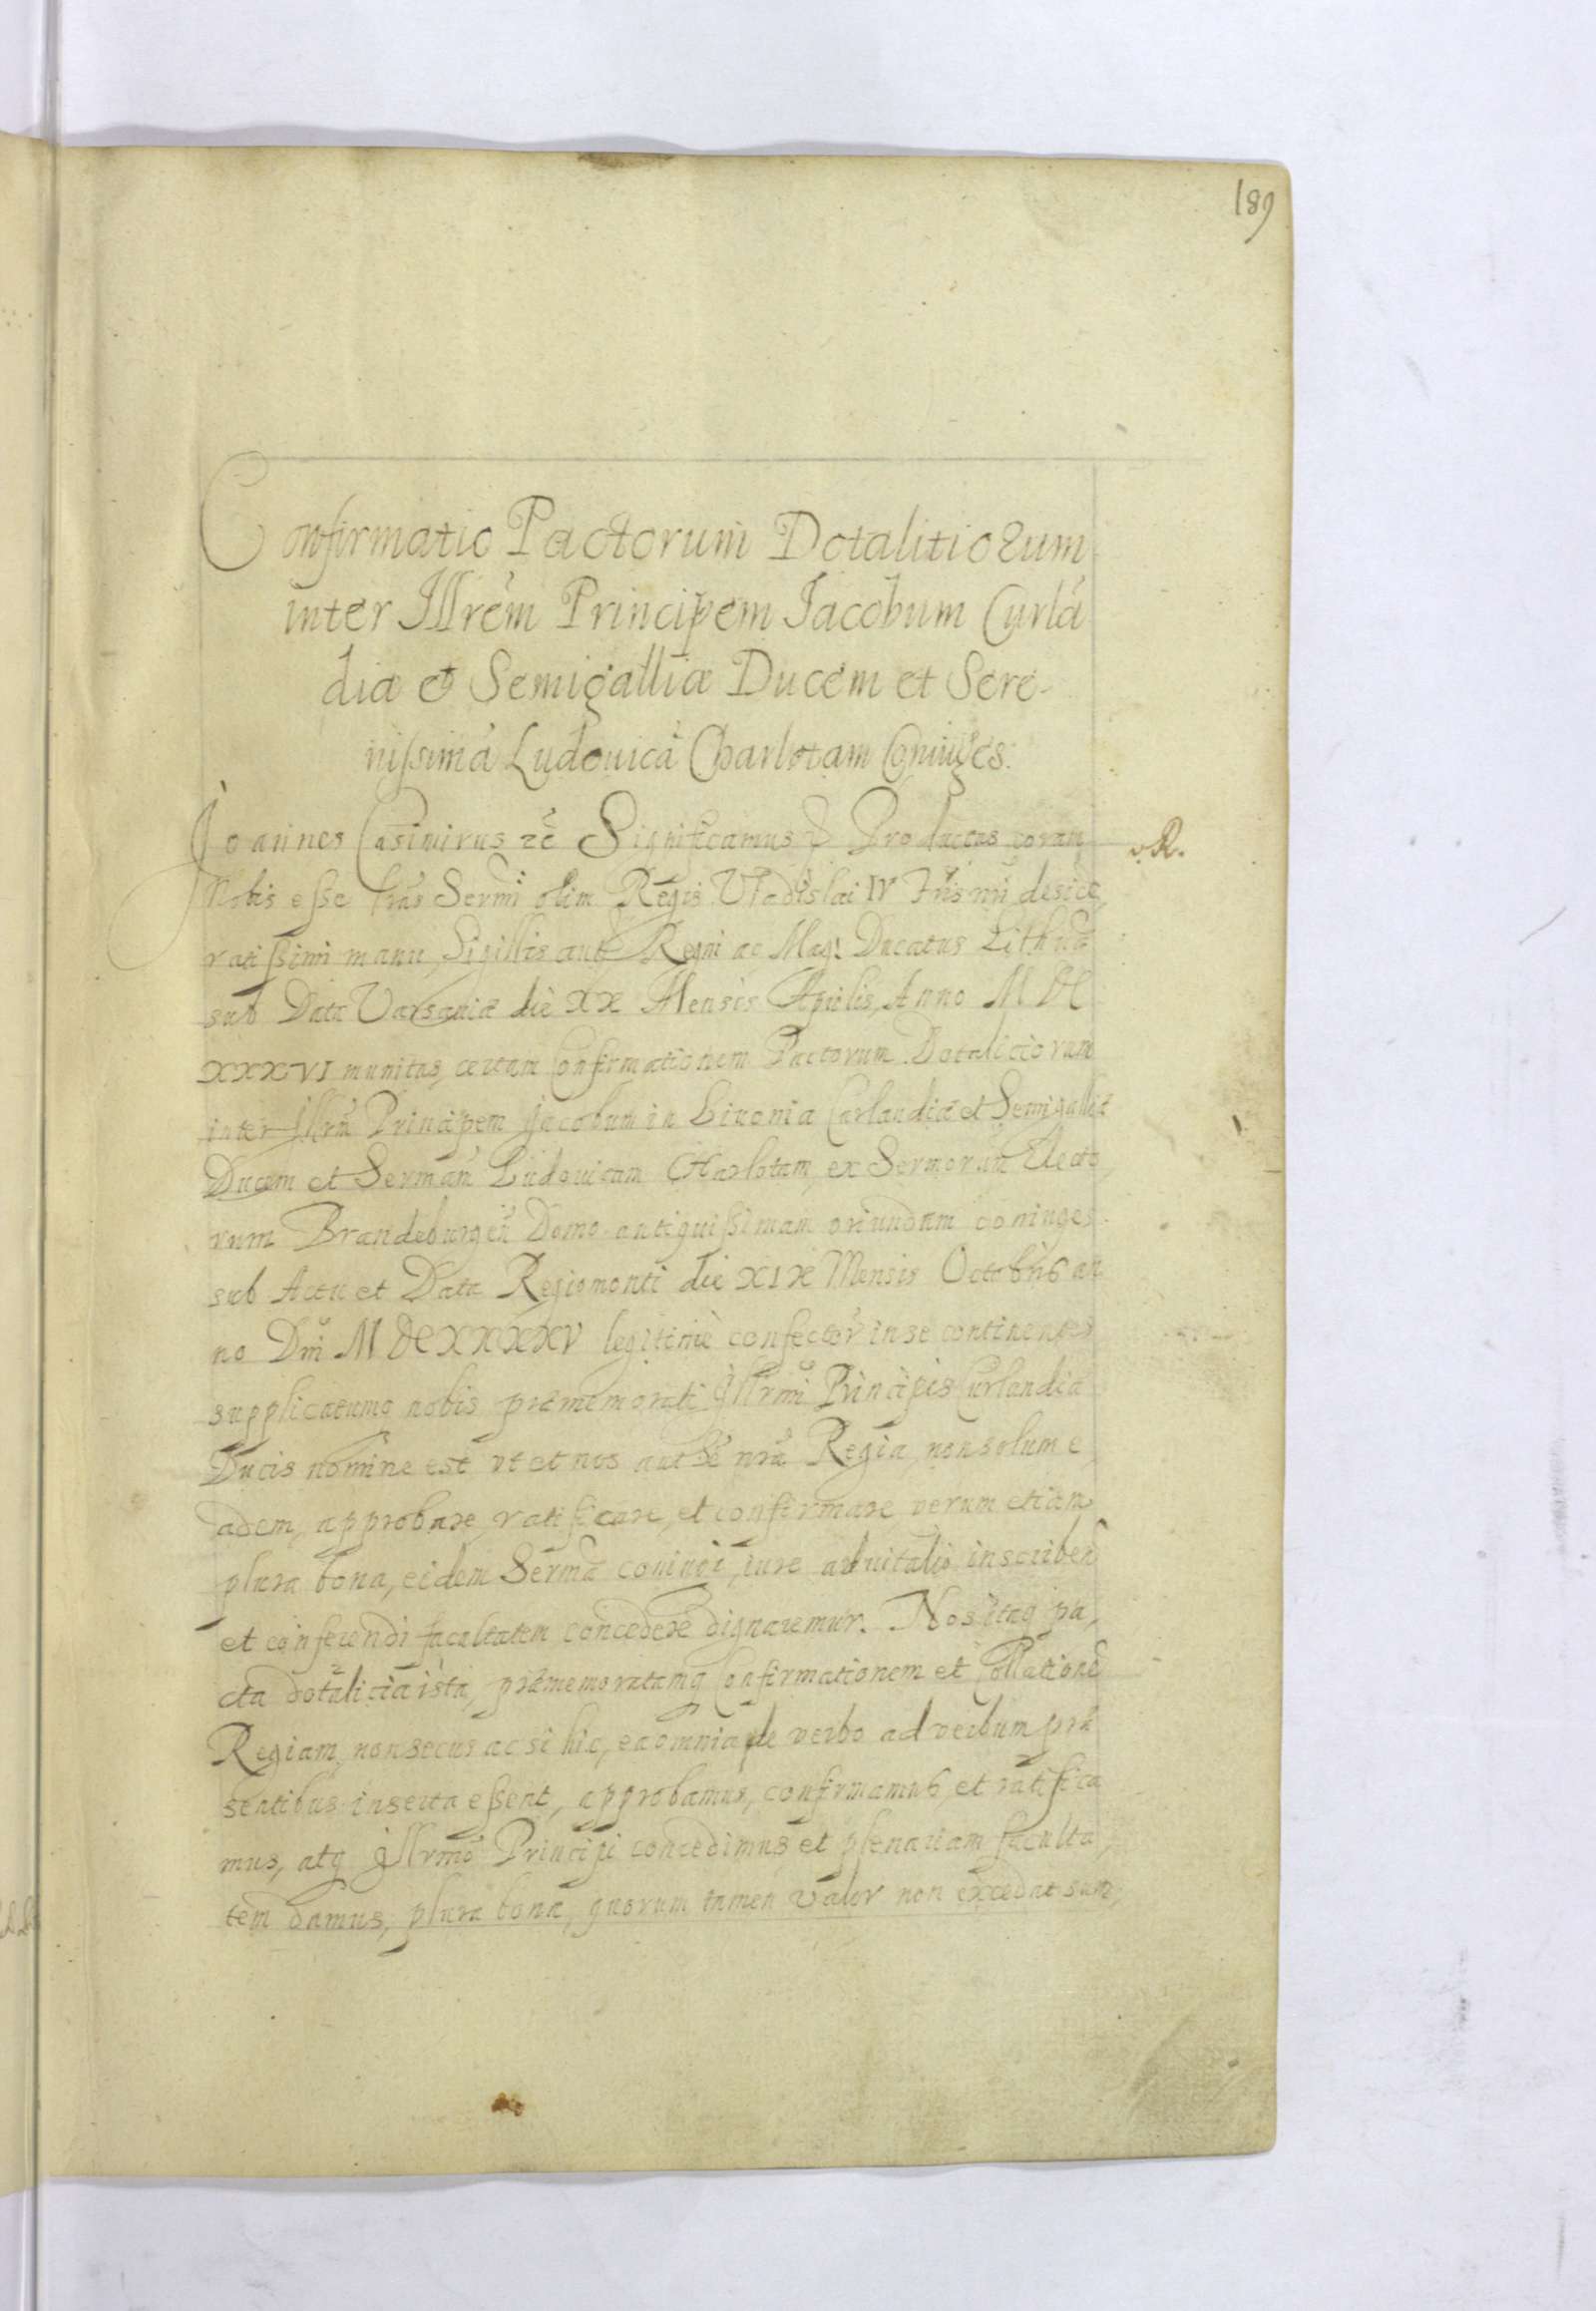 189
Confirmatio Pactorum Dotalitiorum
inter Illrēm Principem Jacobum Curlā
diæ et Semigalliæ Ducem et Sere-
nissimā Ludouicā Charlotam Coniuges.
Joannes Casimirus etc̄ Significamus Productas coram
R.
Nobis esse lr̄as Sermi olim Regis Vladislai IV Fr̄is nr̄i deside,
ratissimi manu, Sigillis autē Regni ac Mag: Ducatus Lithuā
sub Data Varsauiæ die XX Mensis Aprilis, Anno MDC
XXXXVI munitas, certam Confirmationem Pactorum Dotaliciorum
inter Illrm̄ Principem Jacobum in Liuonia Curlandiæ et Semigalliæ
Ducem et Sermam̄ Ludouicam Charlotam, ex Sermorum̄ Electo,
rum Brandeburgeñ Domo antiquissimam oriundam coniuges
sub Actu et Data Regiomonti die XIX Mensis Octobris an
no Dn̄i MDCXXXXV legitimè confector̄ in se continentes
supplicatumq nobis præmemorati Illrmi Principis Curlandiæ
Ducis nomine est vt et nos autħe nr̄a Regia, non solum e,
adem, approbare, ratificare, et confirmare, verum etiam
plura bona, eidem Sermæ coniugi, iure aduitalio inscriben̄
et conferendi facultatem concedere dignaremur. Nos itaq pa,
cta dotalicia ista, præmemoratamq Confirmationem et Collationē
Regiam, non secus ac si hic, ea omnia de verbo ad verbum præ
sentibus inserta essent, approbamus, confirmamus et ratifica
mus, atq Illrmo Principi concedimus et plenariam faculta,
tem damus, plura bona, quorum tamen valor non excedat sum,